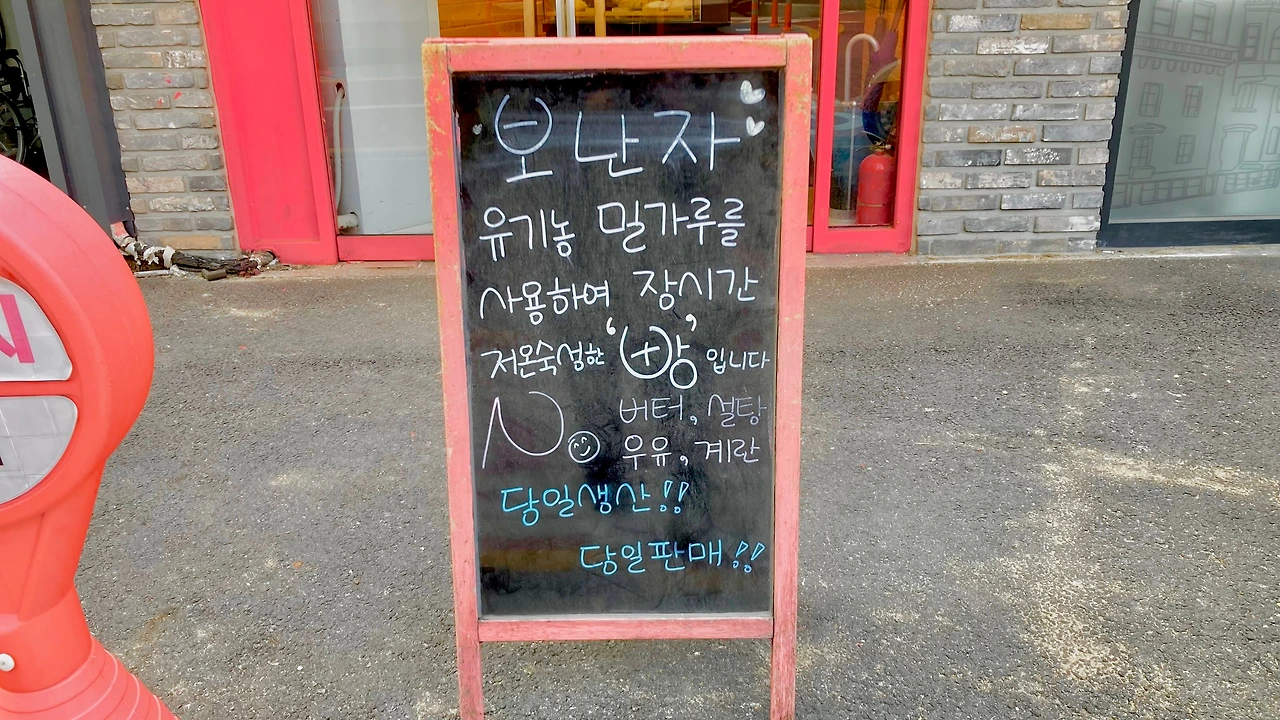 보난자
유기농 밀가루를
사용하여 장시간
저온숙성한 '빵' 입니다
No 버터, 설탕
우유, 계란
당일생산!!
당일판매!!